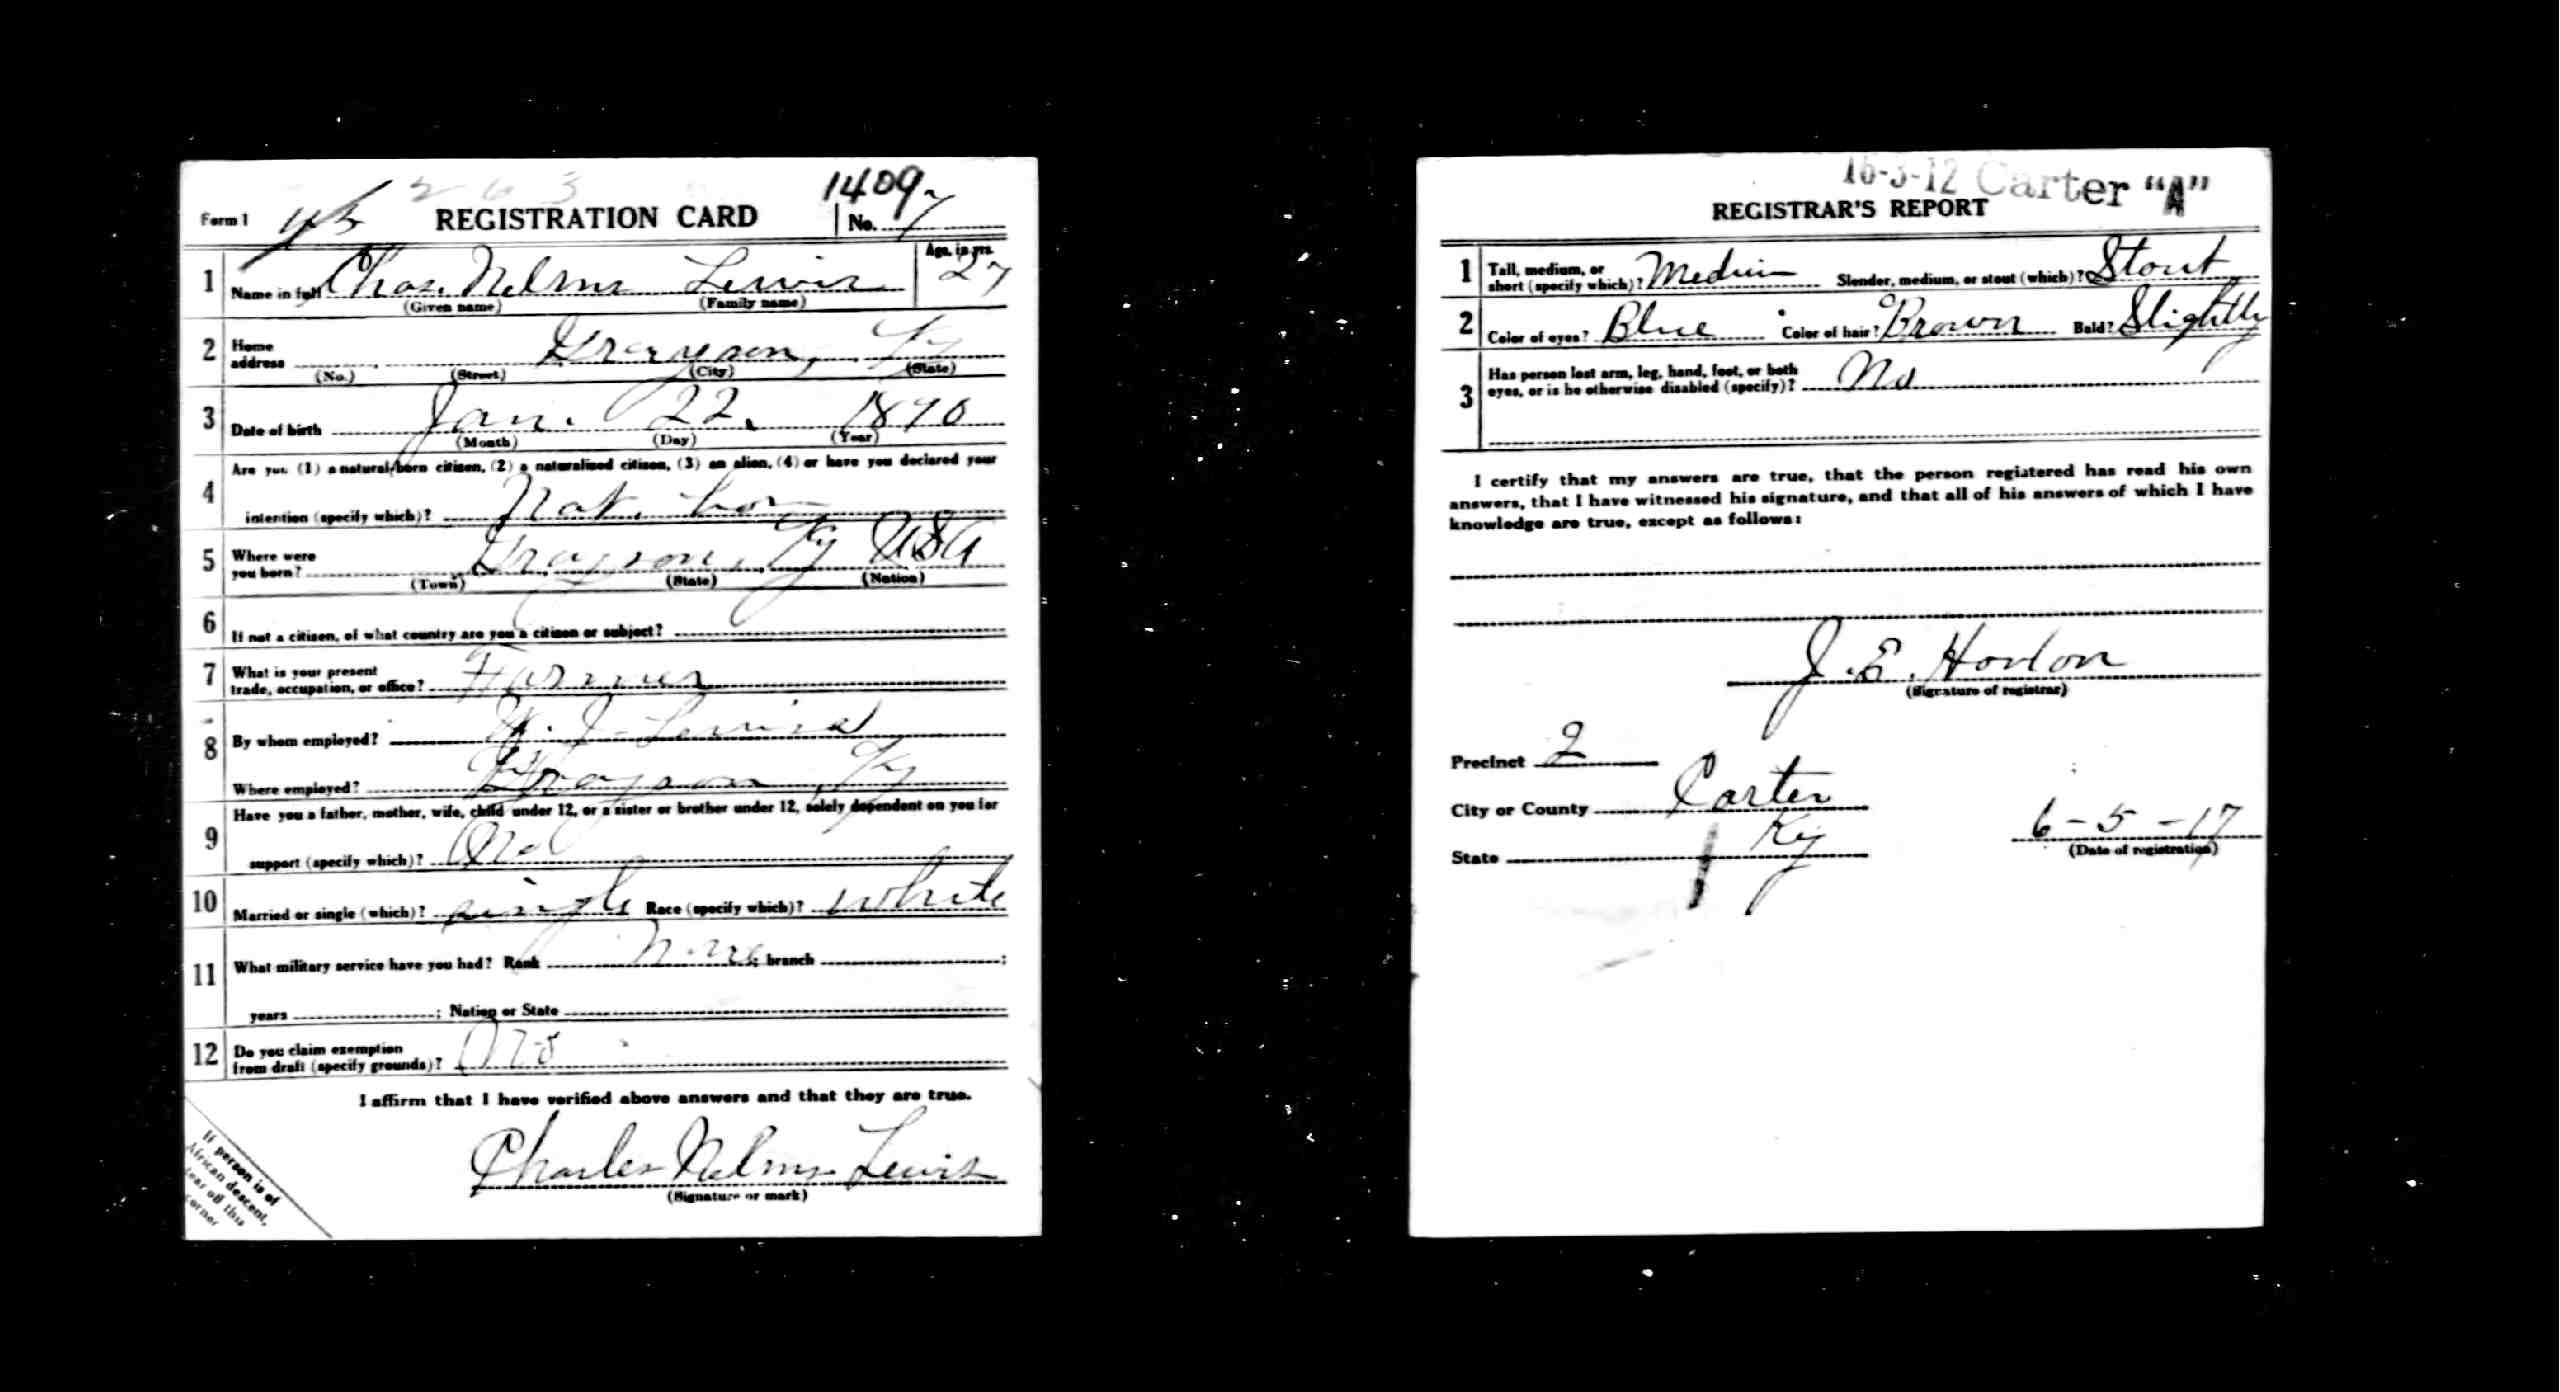 263
1409
Form 1 REGISTRATION CARD No. 7
1 Name in full Chas. Nelms Lewis Age, in yrs. 27
(Given name) (Family name)
2 Home address Grayson, Ky
(No.) (Street) (City) (State)
3 Date of birth Jan. 22, 1890
(Month) (Day) (Year)
4 Are you (1) a natural-born citizen, (2) a naturalized citizen, (3) an alien, (4) or have you declared your
intention (specify which)? Nat. born
5 Where were you born? Grayson, Ky USA
(Town) (State) (Nation)
6 If not a citizen, of what country are you a citizen or subject?
7 What is your present trade, occupation, or office? Farmer
8 By whom employed? Lewis
Where employed? Grayson, Ky
9 Have you a father, mother, wife, child under 12, or a sister or brother under 12, solely dependent on you for
support (specify which)? No
10 Married or single (which)? single Race (specify which)? White
11 What military service have you had? Rank None; branch ;
years ; Nation or State
12 Do you claim exemption from draft (specify grounds)? No
I affirm that I have verified above answers and that they are true.
Charles Nelms Lewis
(Signature or mark)
If person is of
African descent,
tear off this
corner
16-3-12 Carter "A"
REGISTRAR'S REPORT
1 Tall, medium, or short (specify which)? Medium Slender, medium, or stout (which)? Stout
2 Color of eyes? Blue Color of hair? Brown Bald? Slightly
3 Has person lost arm, leg, hand, foot, or both
eyes, or is he otherwise disabled (specify)? No
I certify that my answers are true, that the person registered has read his own
answers, that I have witnessed his signature, and that all of his answers of which I have
knowledge are true, except as follows:
J. E. Horton
(Signature of registrar)
Precinct 2
City or County Carter
State Ky
6-5-17
(Date of registration)